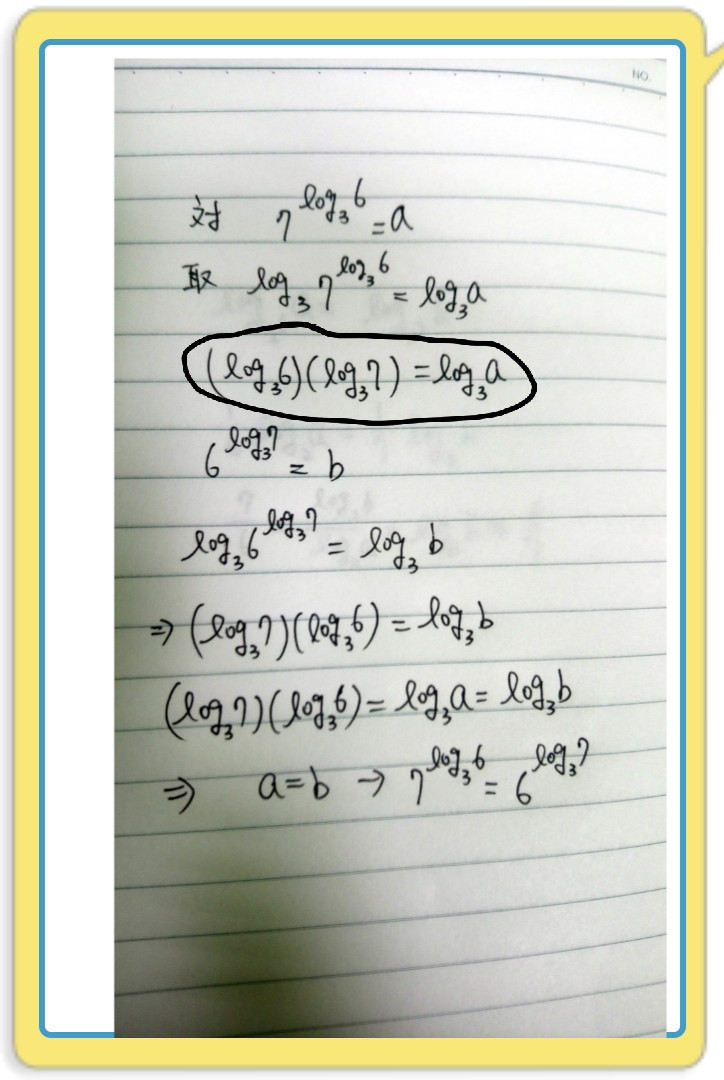 NO.
对 7^{log_3 6} = a
取 log_3 7^{log_3 6} = log_3 a
(log_3 6)(log_3 7) = log_3 a
6^{log_3 7} = b
log_3 6^{log_3 7} = log_3 b
⇒ (log_3 7)(log_3 6) = log_3 b
(log_3 7)(log_3 6) = log_3 a = log_3 b
⇒ a = b → 7^{log_3 6} = 6^{log_3 7}